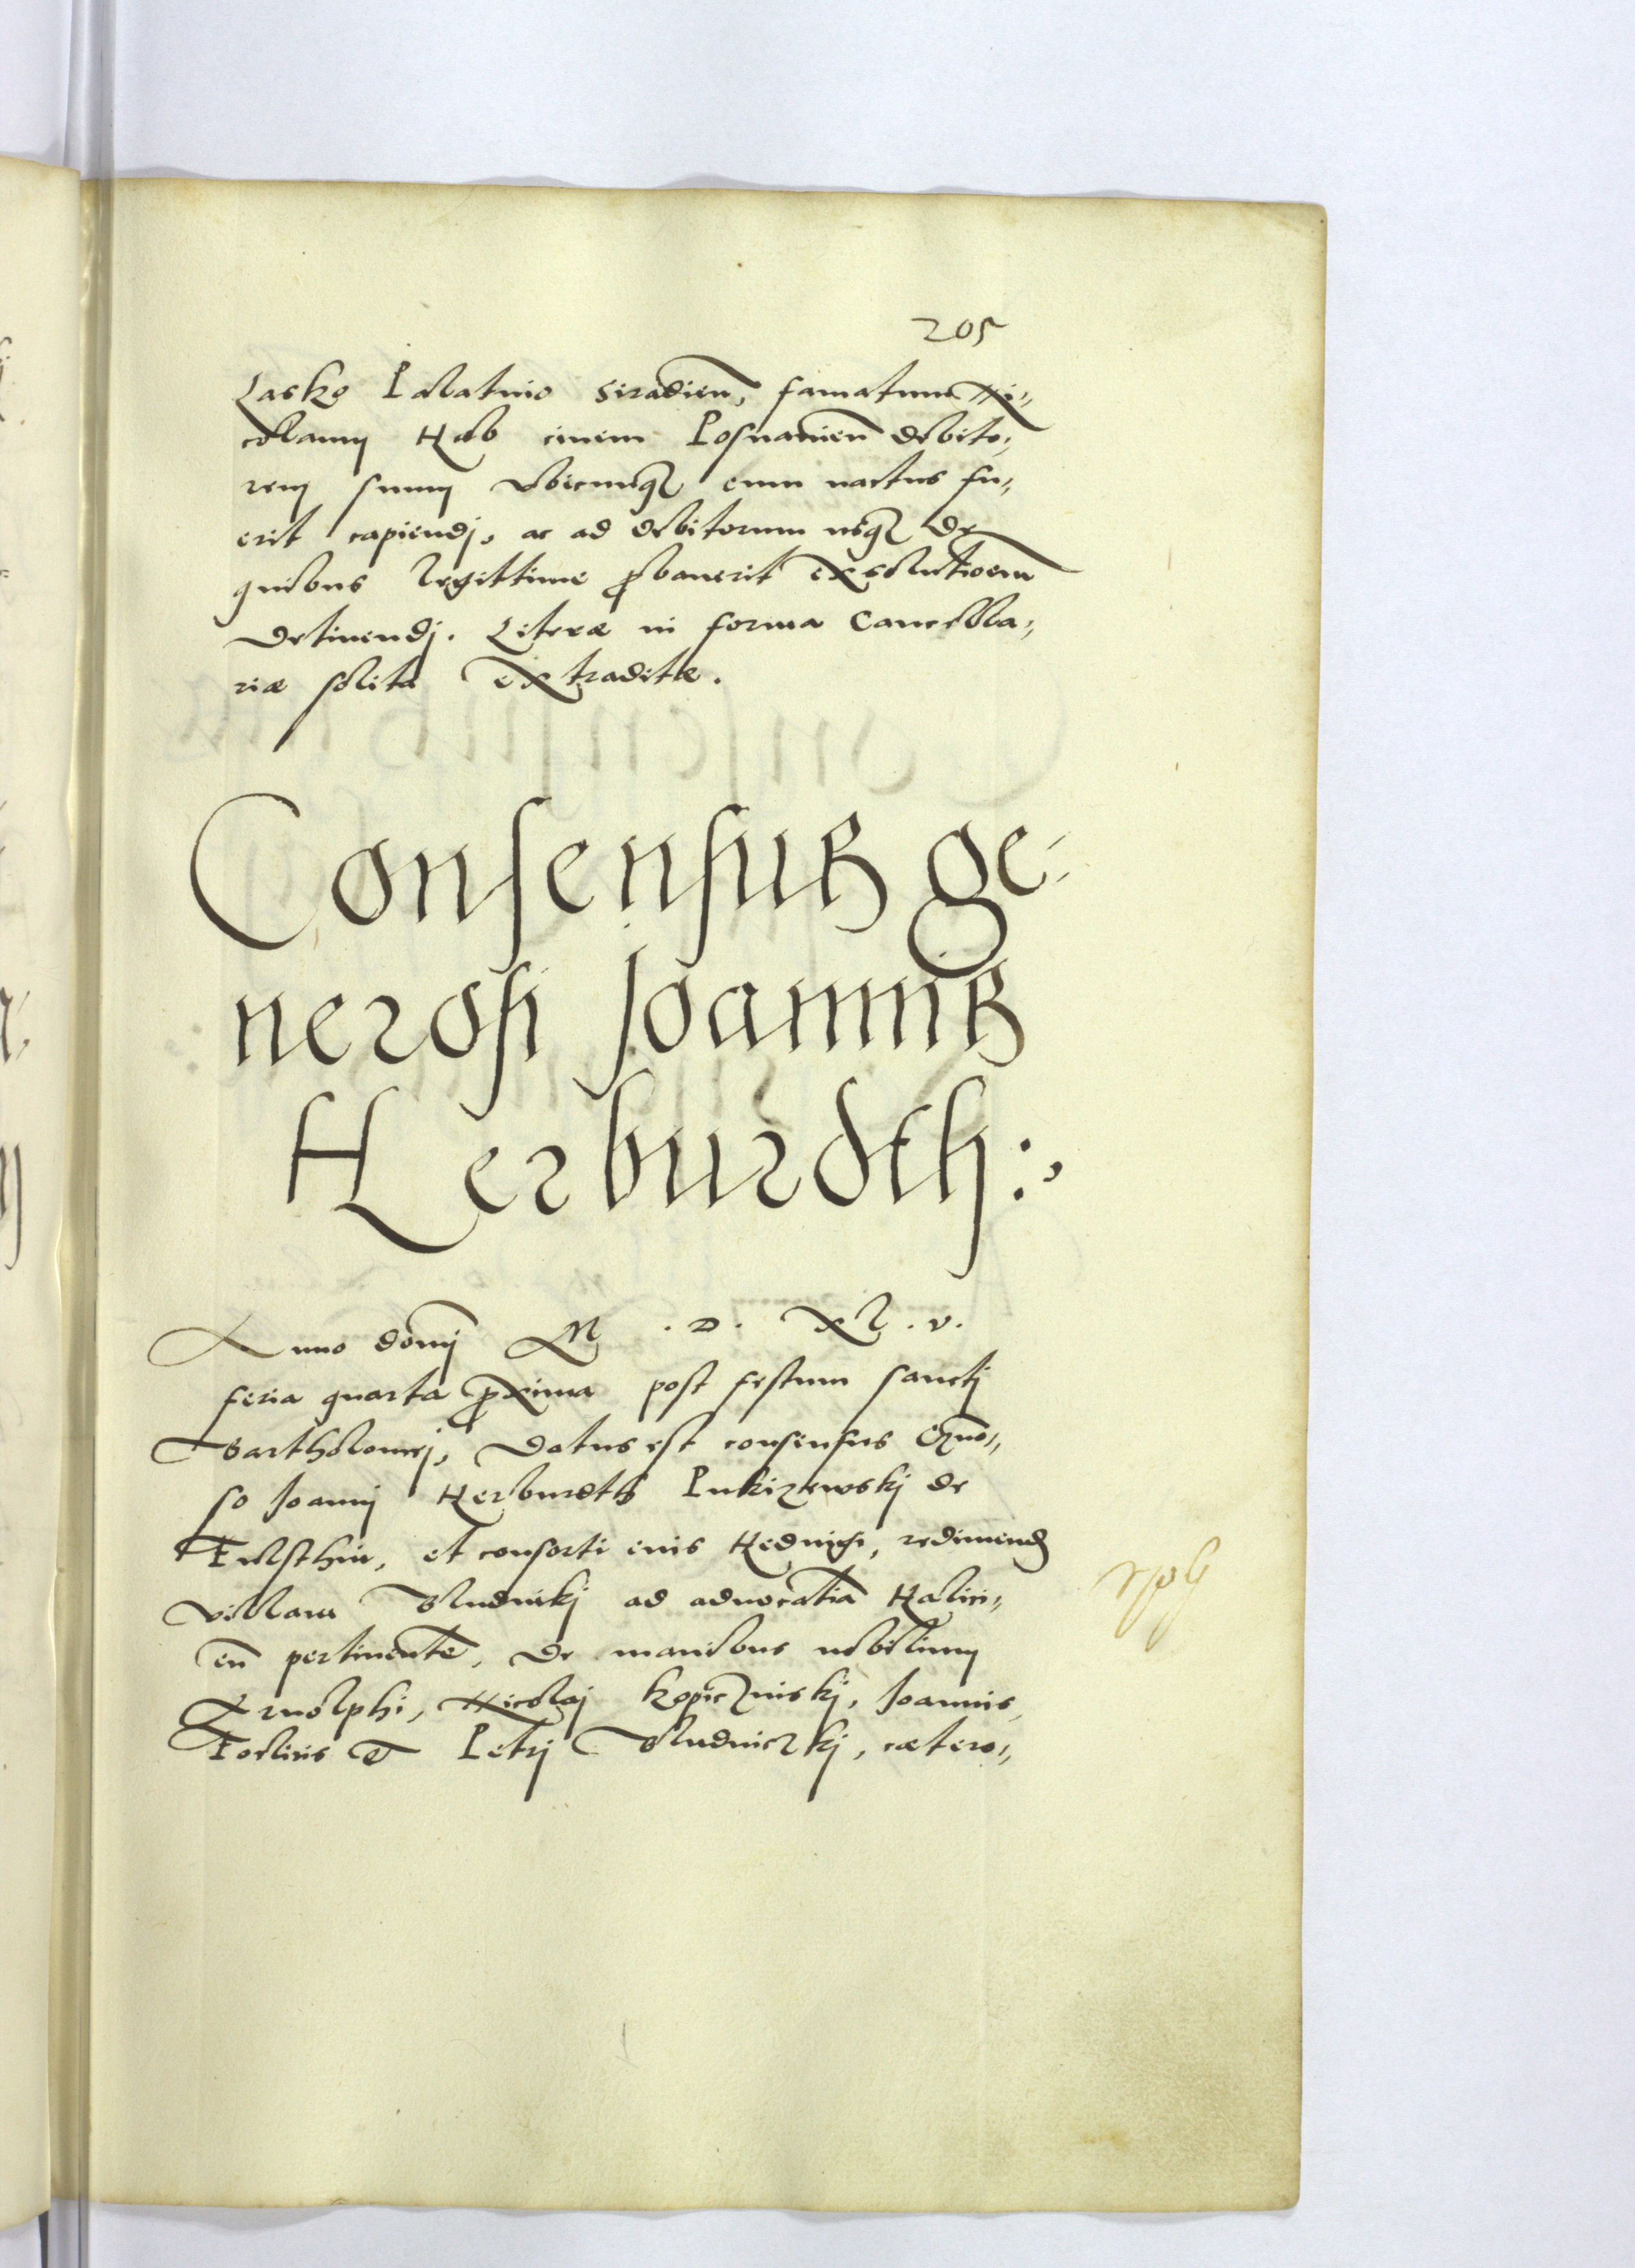 205
Lasko Palatino Siradien̄, famatum Ni„
colaum Hab civem Posnanien̄ debito„
rem suum ubicumq₃ eum nactus fu„
erit capiendj, ac ad debitorum usq₃ de
quibus legittime ꝓbauerit exsolutioem
detinendj. Literæ in forma Cancella„
riæ solita extraditæ.
Consensus ge„
nerosi Joannis
Herburdth:,
Anno domj M .D. XL.v.
feria quarta ꝓxima post festum sanctj
Bartholomej, datus est consensus G̃no„
so Joannj Herburdth Lukizewskj de
Fulsthin, et consorti eius Hedvigi, redimend
villam Bludnikj ad aduocatiā Halici„
en̄ pertinentē, de manibus nobilium
Arnolphi, Nicolaj Kopiczniskj, Joannis,
Foelicis et Petrj Bludniczkj, cætero„